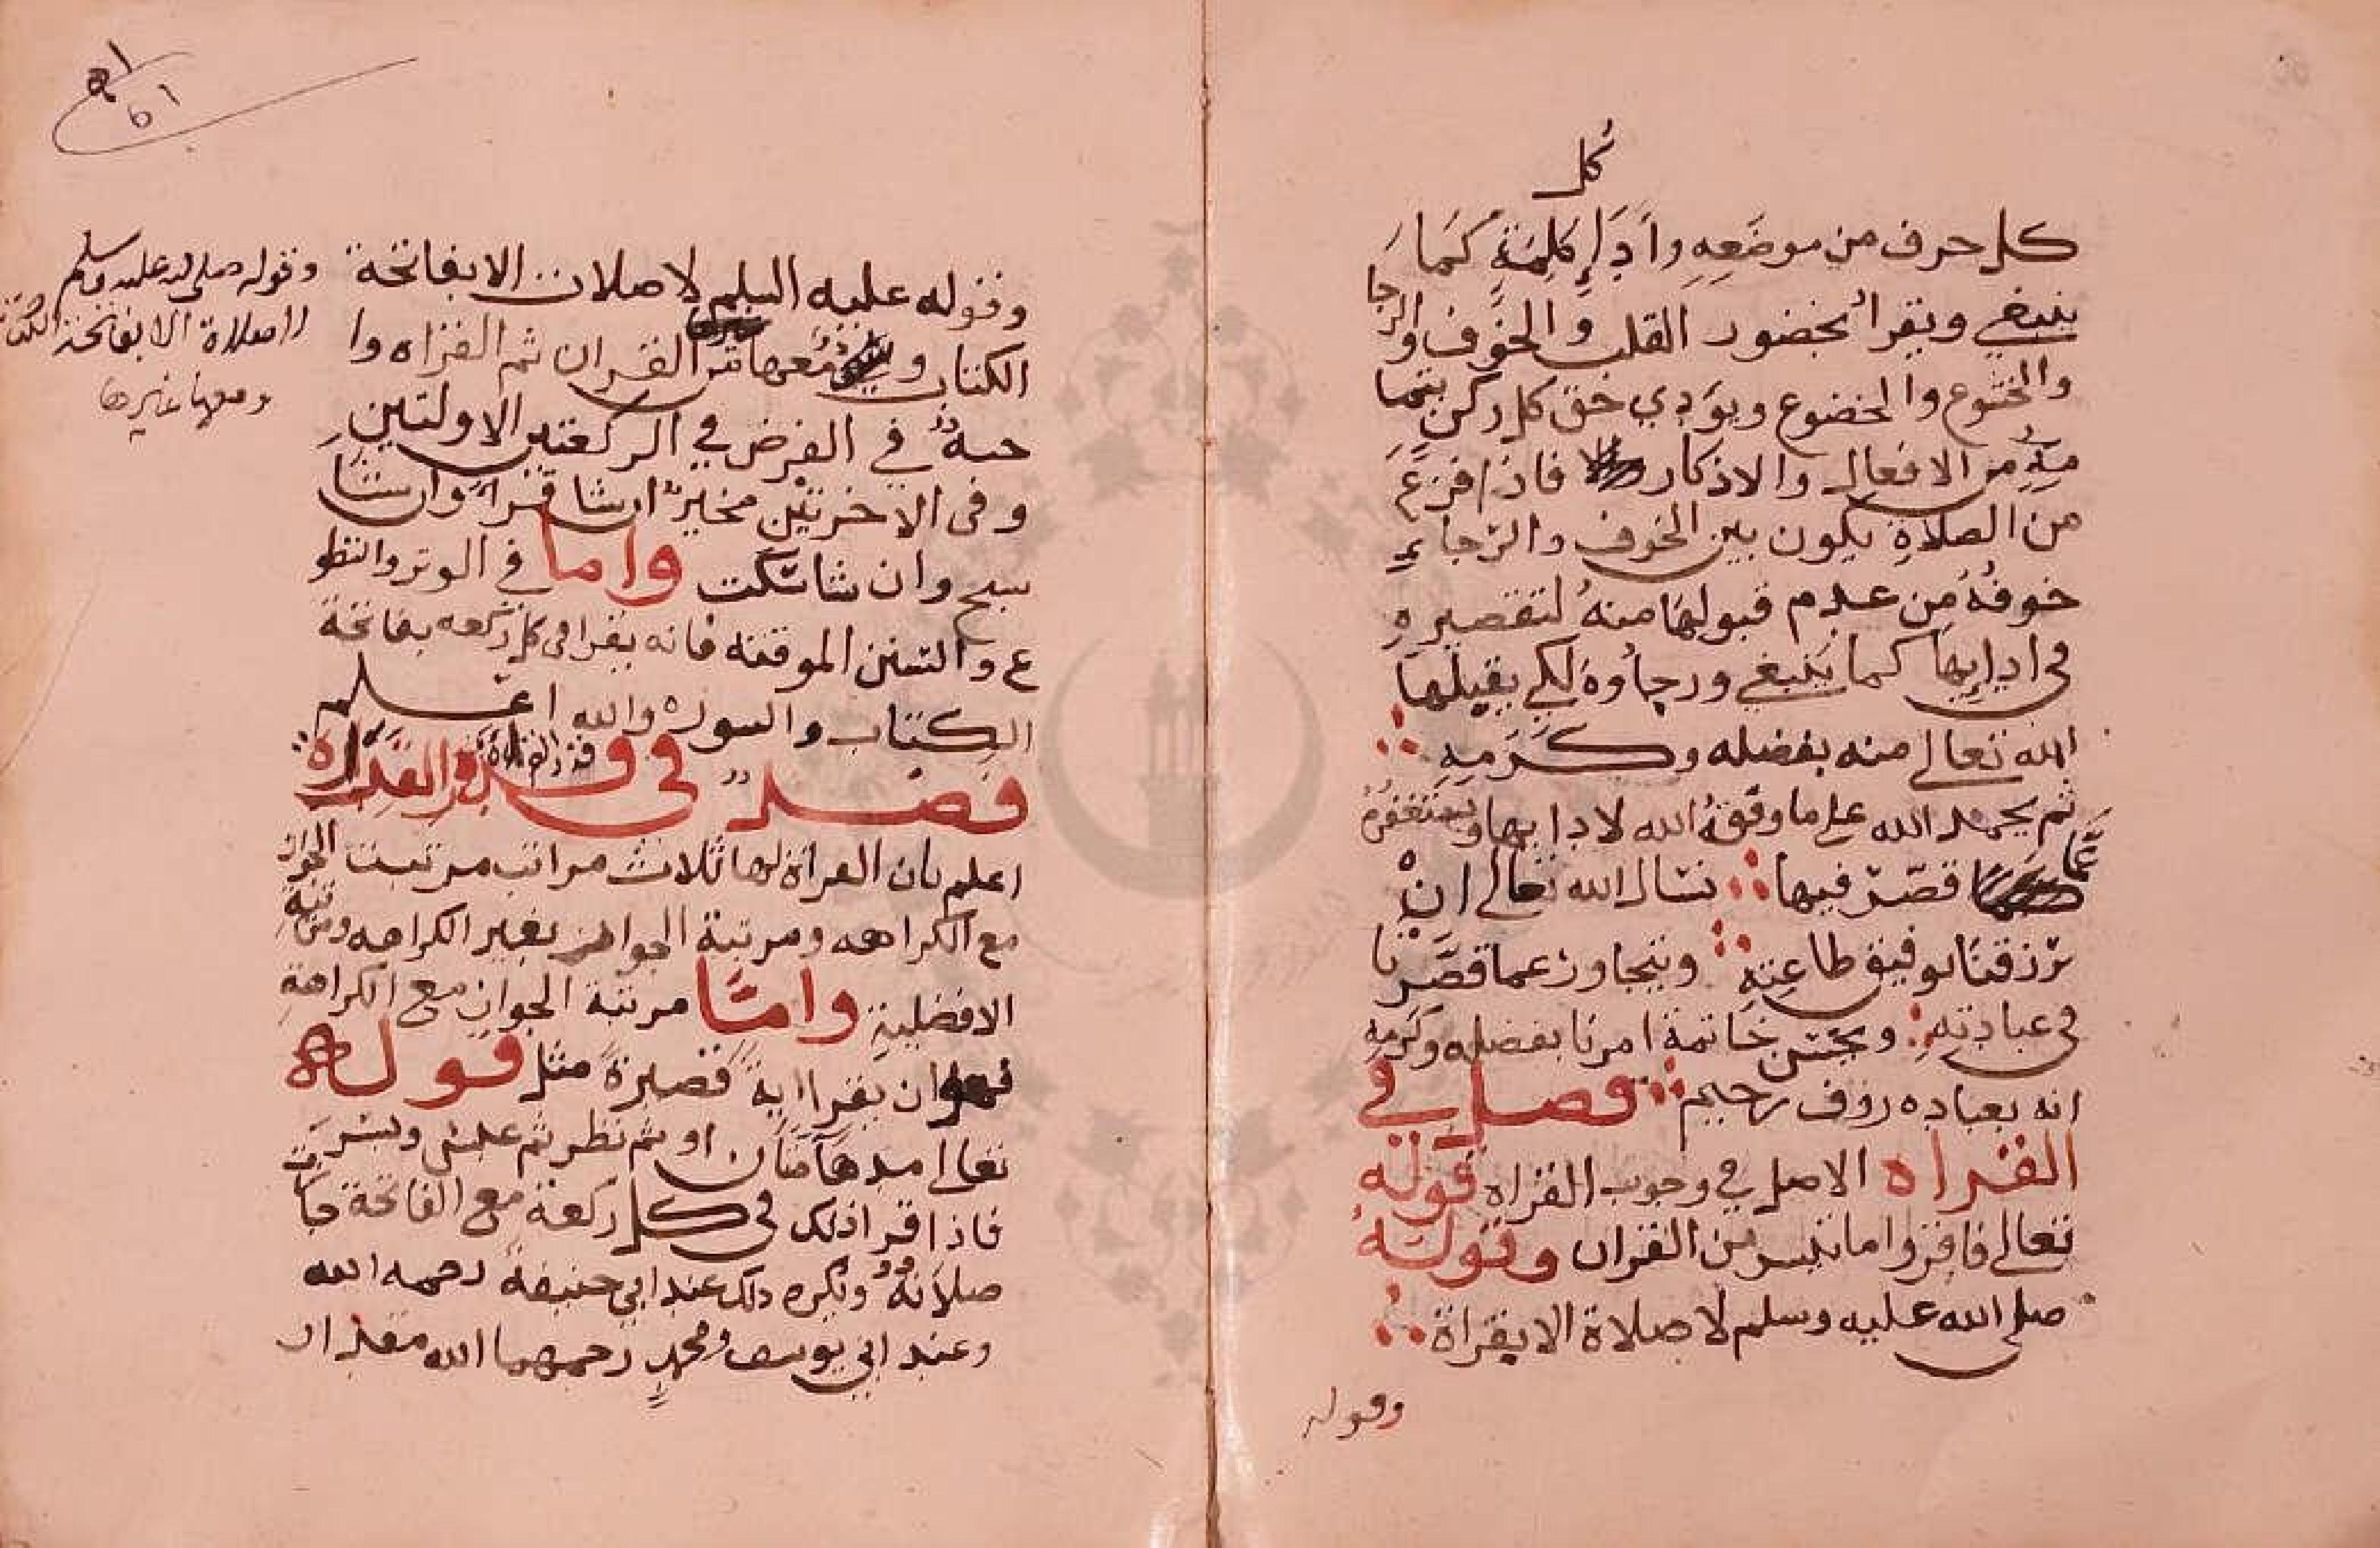 كل
كل حرف من موضعه واداء كلمة كما
ينبغي ويقرأ بحضور القلب والخوف والرجا
والخشوع والخضوع ويؤدي حق كل ركن بتما
مه من الافعال والاذكار فاذا فرغ
من الصلاة يكون بين الخوف والرجاء
خوفه من عدم قبولها منه لتقصيره
في ادايها كما ينبغي ورجاؤه لكي يقبلها
الله تعالى منه بفضله وكرمه
ثم يحمد الله على ما وفقه الله لادايها ويستغفره
عما قصر فيها نسال الله تعالى ان
يرزقنا توفيق طاعته ويتجاوز عما قصرنا
في عبادته ويحسن خاتمة امرنا بفضله وكرمه
انه بعباده روف رحيم فصل في
القراه الاصل في وجوب القراه قوله
تعالى فاقروا ما تيسر من القران وقوله
صلى الله عليه وسلم لا صلاة الا بقراة
وقوله
وقوله عليه السلم لا صلات الا بفاتحة
الكتاب و معها من القران ثم القراه وا
جبة في الفرض في الركعتين الاولتين
وفي الاخرتين مخير ان شا قرا وان شا
سبح وان شا سكت واما في الوتر والتطو
ع والسنن الموقته فانه يقرا في كل ركعه بفاتحة
الكتاب والسوره والله اعلم
فصل في قدر القراة
اعلم بان القراة لها ثلاث مراتب مرتبت الجواز
مع الكراهه ومرتبة الجواز بغير الكراهه ومرتبة
الافضلية واما مرتبة الجواز مع الكراهة
فهو ان يقرا اية قصيرة مثل قوله
تعالى مدهامتان او ثم نظر ثم عبس وبسر
فاذا قرا ذلك في كل ركعة مع الفاتحة جازت
صلاته ويكره ذلك عند ابي حنيفة رحمه الله
وعند ابي يوسف ومحمد رحمهما الله مقدار
وقوله صلى الله عليه وسلم
لا صلاة الا بفاتحة الكتاب
ومعها غيرها